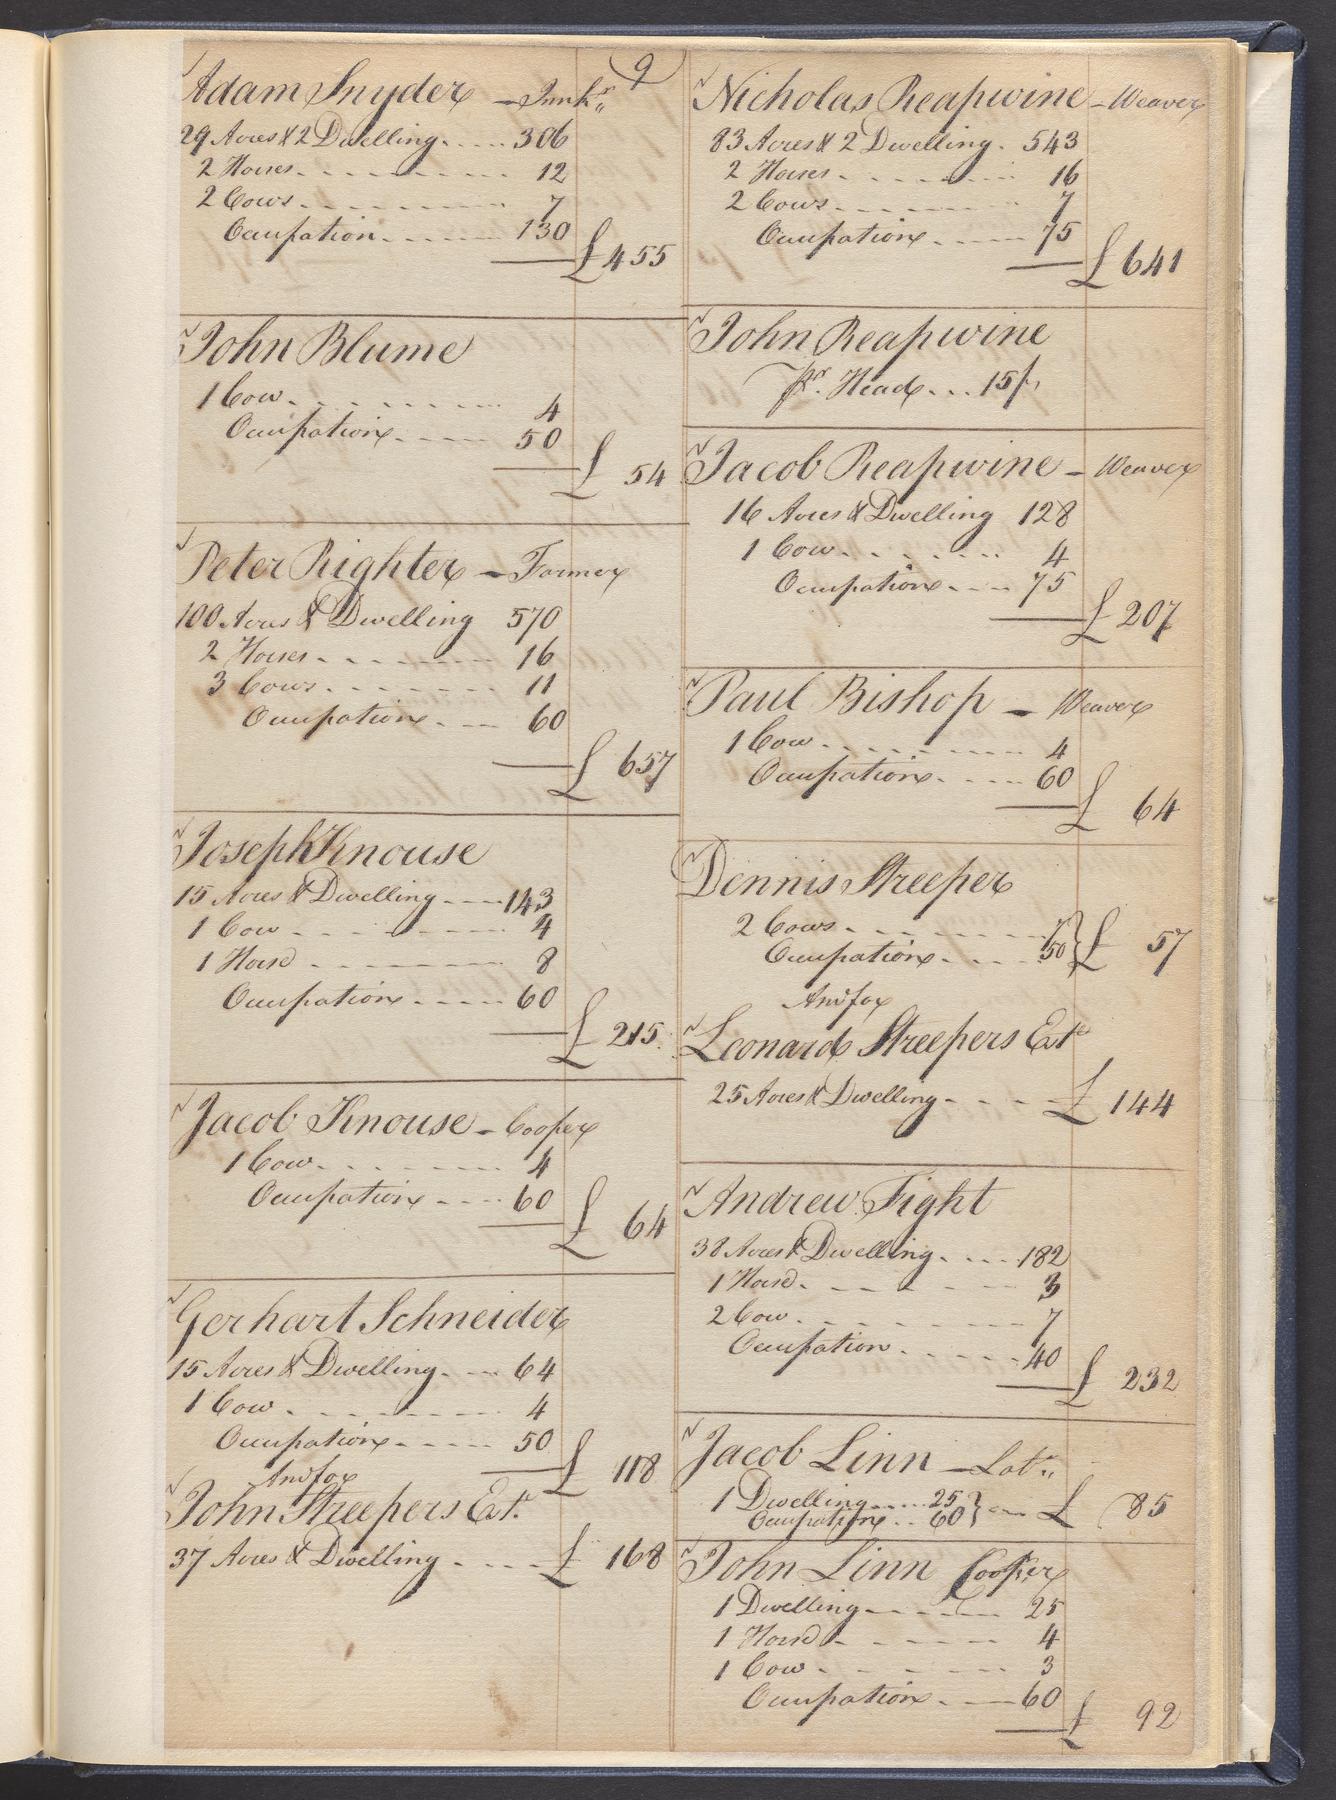 9
Adam Snyder - Innkr
29 Acres & 2 Dwelling 306
2 Horses 12
2 Cows 7
Occupation 130
£ 455
John Blume
1 Cow 4
Occupation 50
£ 54
Peter Righter - Farmer
100 Acres & Dwelling 570
2 Horses 16
3 Cows 11
Occupation 60
£ 657
Joseph Knouse
15 Acres & Dwelling 143
1 Cow 4
1 Horse 8
Occupation 60
£ 215
Jacob Knouse - Cooper
1 Cow 4
Occupation 60
£ 64
Gerhart Schneider
15 Acres & Dwelling 64
1 Cow 4
Occupation 50
£ 118
And for
John Streepers Est.
37 Acres & Dwelling £ 168
Nicholas Reapwine - Weaver
83 Acres & 2 Dwelling 543
2 Horses 16
2 Cows 7
Occupation 75
£ 641
John Reapwine
Pr. Head 15/
Jacob Reapwine - Weaver
16 Acres & Dwelling 128
1 Cow 4
Occupation 75
£ 207
Paul Bishop - Weaver
1 Cow 4
Occupation 60
£ 64
Dennis Streeper
2 Cows 7
Occupation 50 } £ 57
And for
Leonard Streepers Est
25 Acres & Dwelling £ 144
Andrew Fight
38 Acres & Dwelling 182
1 Horse 3
2 Cow 7
Occupation 40
£ 232
Jacob Linn - Labr
1 Dwelling 25
Occupation 60 } £ 85
John Linn Cooper
1 Dwelling 25
1 Horse 4
1 Cow 3
Occupation 60
£ 92